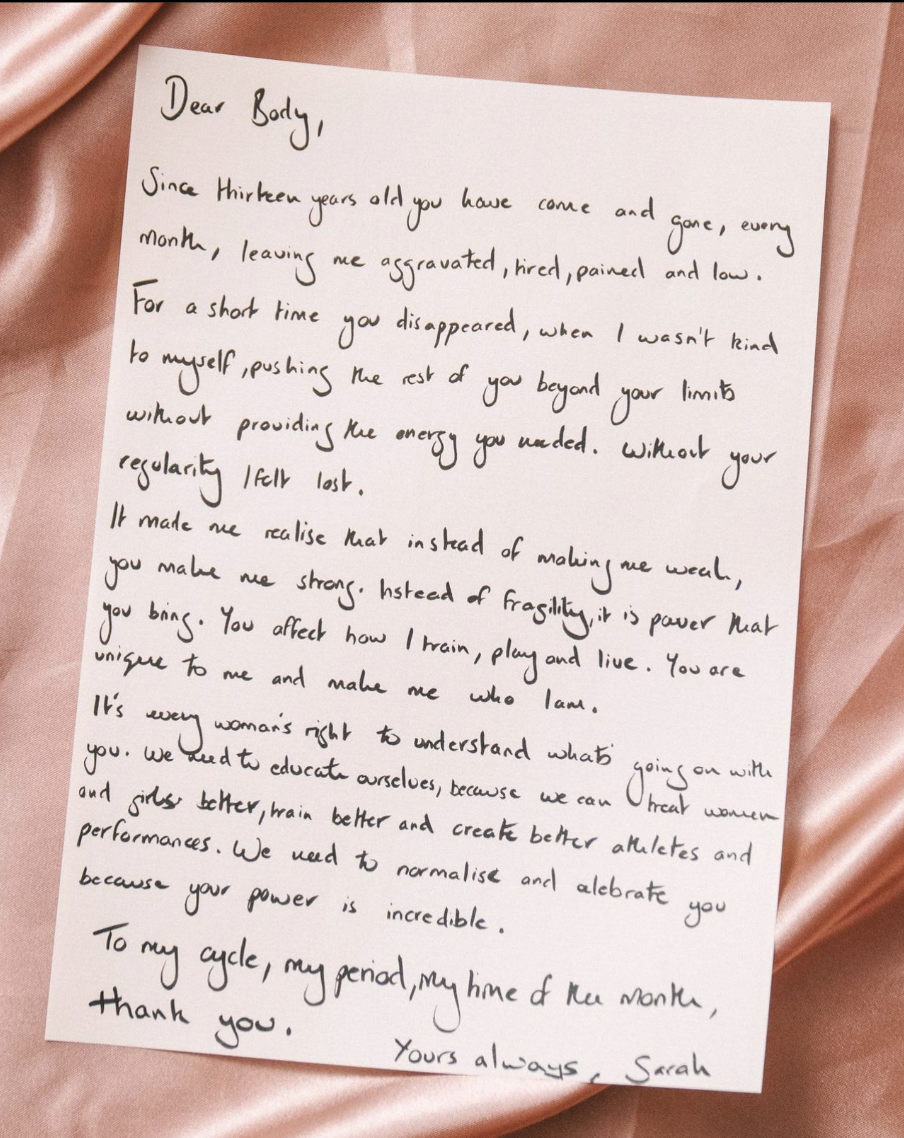 Dear Body,
Since thirteen years old you have come and gone, every
month, leaving me aggravated, tired, pained and low.
For a short time you disappeared, when I wasn't kind
to myself, pushing the rest of you beyond your limits
without providing the energy you needed. Without your
regularity I felt lost.
It made me realise that instead of making me weak,
you make me strong. Instead of fragility, it is power that
you bring. You affect how I train, play and live. You are
unique to me and make me who I am.
It's every woman's right to understand what's going on with
you. We need to educate ourselves, because we can treat women
and girls better, train better and create better athletes and
performances. We need to normalise and celebrate you
because your power is incredible.
To my cycle, my period, my time of the month,
thank you.
Yours always, Sarah